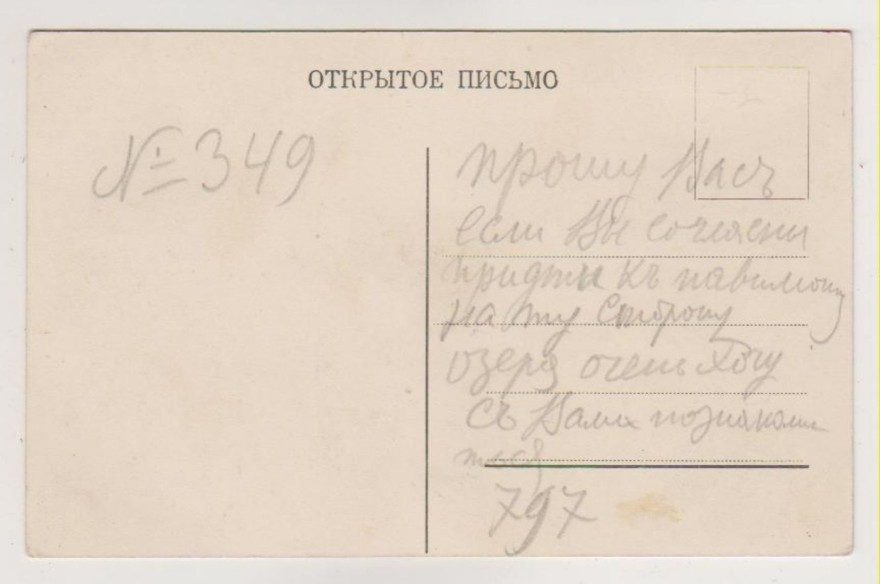 ОТКРЫТОЕ ПИСЬМО
№ 349
прошу Васъ
если Вы согласны
придты къ павилиону
на ту сторону
озера очень хочу
съ Вами познакоми
тся
797